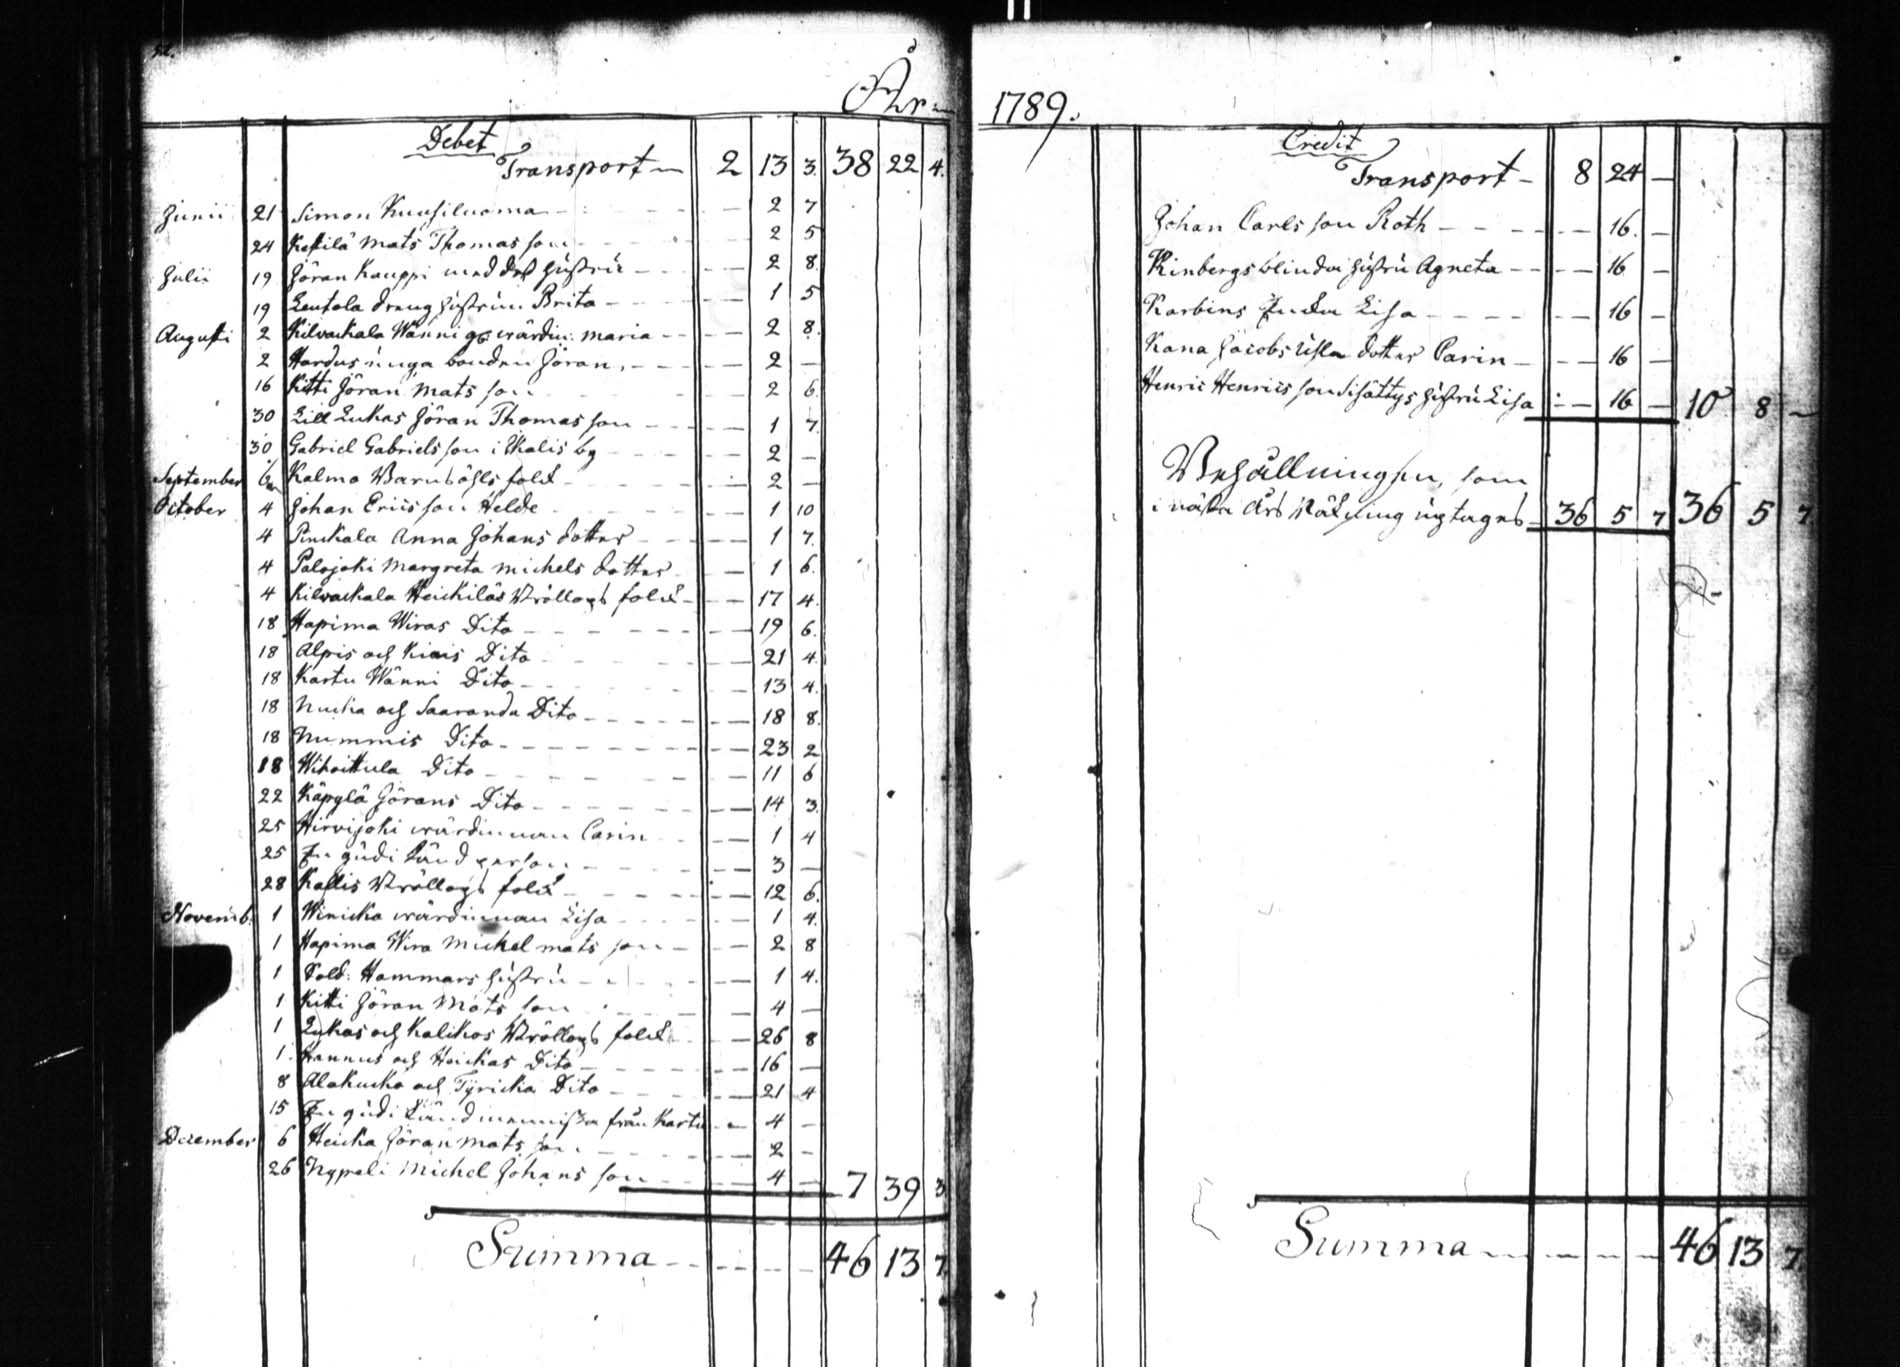 52.
År
Debet
Transport 2 13 3. 38 22 4.
Junii 21 Simon Kuusiluoma 2 7
24 Keskilä Mats Thomas son 2 5
Julii 19 Jöran Kauppi med dess Hustru 2 8.
19 Leutola dräng hustrun Brita 1 5
Augusti 2 Kilvackala Wänni wärdin: Maria 2 8.
2 Hardus unga bonden Jöran 2 —
16 Kitti Jöran Mats son 2 6.
30 Lill Lukas Jöran Thomas son 1 7.
30 Gabriel Gabriels son i Skalis by 2 —
September 6 Kalmo Barns öhls folck 2 —
October 4 Johan Erics son Helde 1 10
4 Pinckala Anna Johans dotter 1 7.
4 Palojoki Margreta Michels dotter 1 6.
4 Kilvackala Heickiläs Bröllops folck 17 4.
18 Hapima Wiras Dito 19 6.
18 Alpis och Kiais Dito 21 4.
18 Kartu Wänni Dito 13 4.
18 Nucka och Saaranda Dito 18 8.
18 Nummis Dito 23 2
18 Wihoittula Dito 11 6
22 Käpylä Görans Dito 14 3.
25 Hirvijoki wärdinnan Carin 1 4
25 En gudi känd person 3 —
28 Kallis Bröllops folck 12 6.
Novemb. 1 Winicka wärdinnan Lisa 1 4.
1 Hapima Wira Michel Mats son 2 8
1 Sold: Hammars hustru 1 4.
1 Kitti Jöran Mats son 4 —
1 Lukas och Kalikos Bröllops folck 26 8
1. Hannus och Heickas Dito 16 —
8 Alakucko och Tyricka Dito 21 4
15 En gudi känd menniska från Kartu 4 —
December 6 Heicka Jöran Mats son 2 —
26 Nypeli Michel Johans son 4 — 7 39 3
Summa 46 13 7.
1789.
Credit
Transport 8 24 —
Johan Carls son Roth 16. —
Rinbergs blinda hustru Agneta 16 —
Karbins Enka Lisa 16 —
Kana Jacobs usla dotter Carin 16 —
Henric Henrics son Sisättys hustru Lisa 16 — 10 8 —
Behållningen, som
i nästa års Räkning uptages 36 5 7 36 5 7.
Summa 46 13 7.